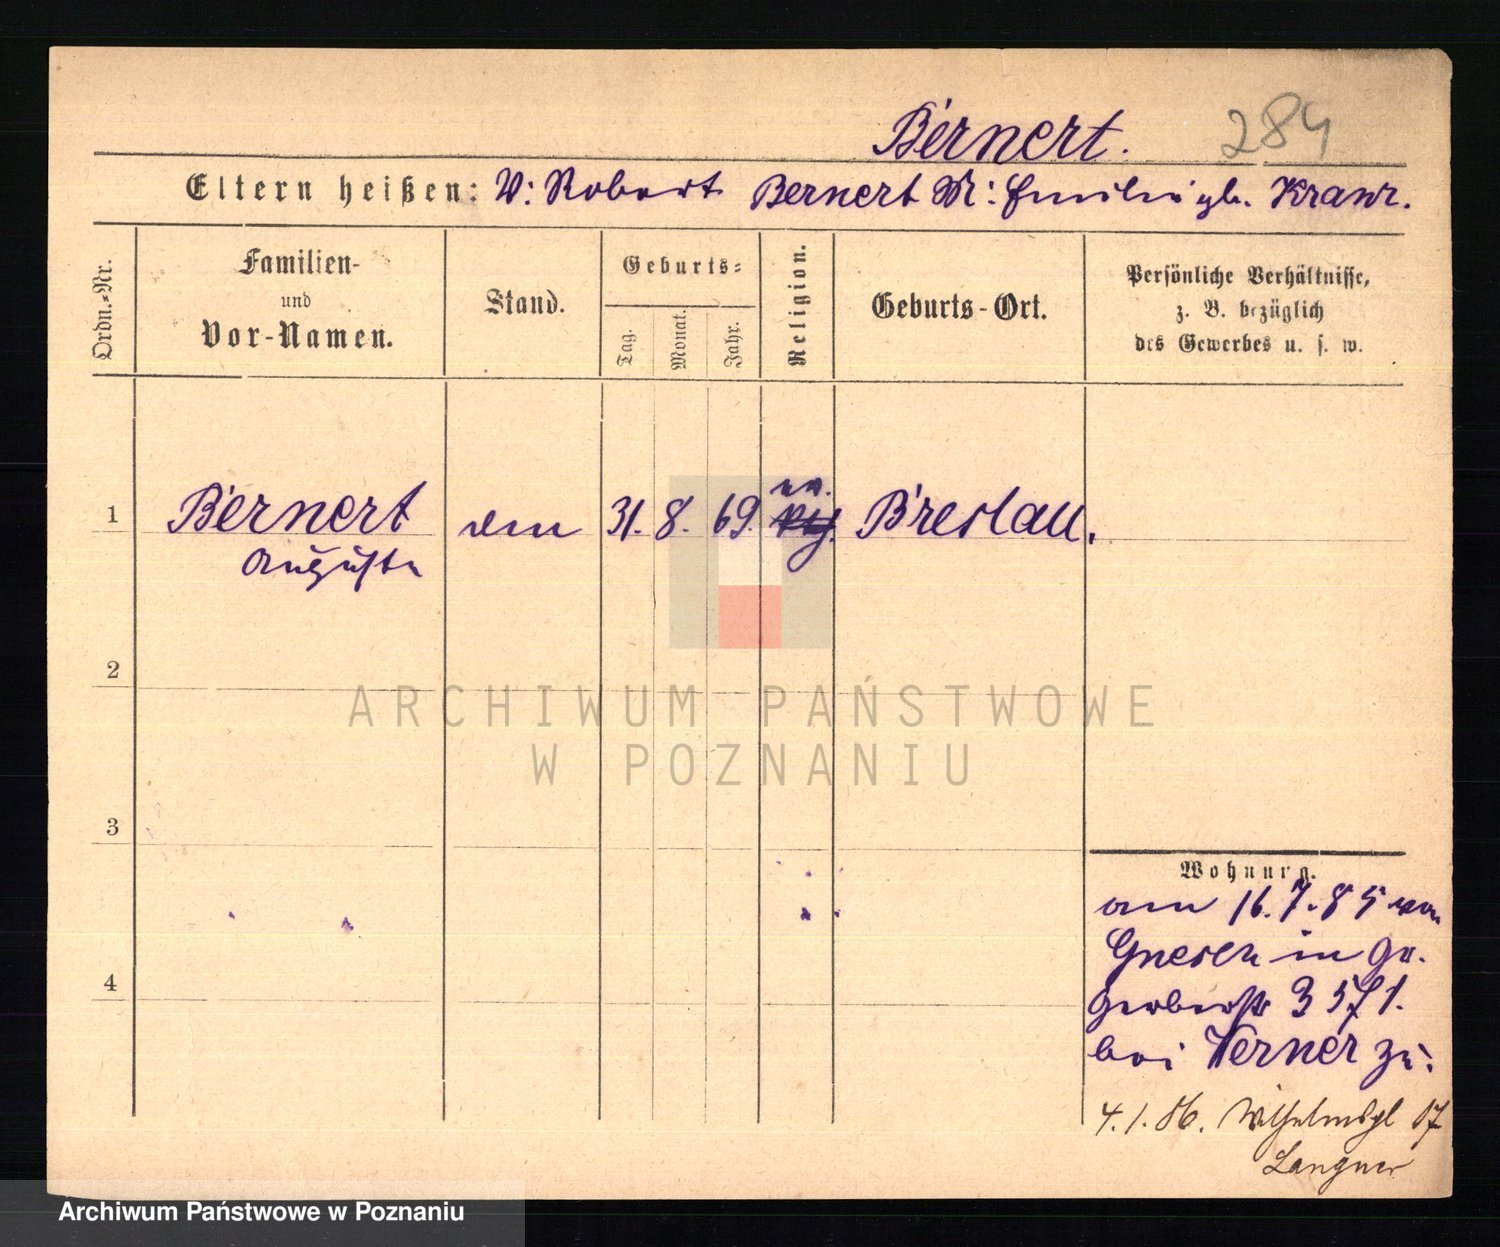 Bernert. 284
Eltern heißen: V: Robert Bernert M: Emilie gb. Kranz.
Ordn.-Nr.
Familien-
und
Vor-Namen.
Stand.
Geburts-
Tag.
Monat.
Jahr.
Religion.
Geburts-Ort.
Persönliche Verhältnisse,
z. B. bezüglich
des Gewerbes u. s. w.
ev.
1 Bernert 31. 8. 69. Breslau.
Auguste
2
3
4
Wohnung.
am 16.7.85 von
Gnesen in
Gerberstr 3
bei Werner zu.
4.1.86. Wilhelmspl 17
Langner
ARCHIWUM PAŃSTWOWE
W POZNANIU
Archiwum Państwowe w Poznaniu